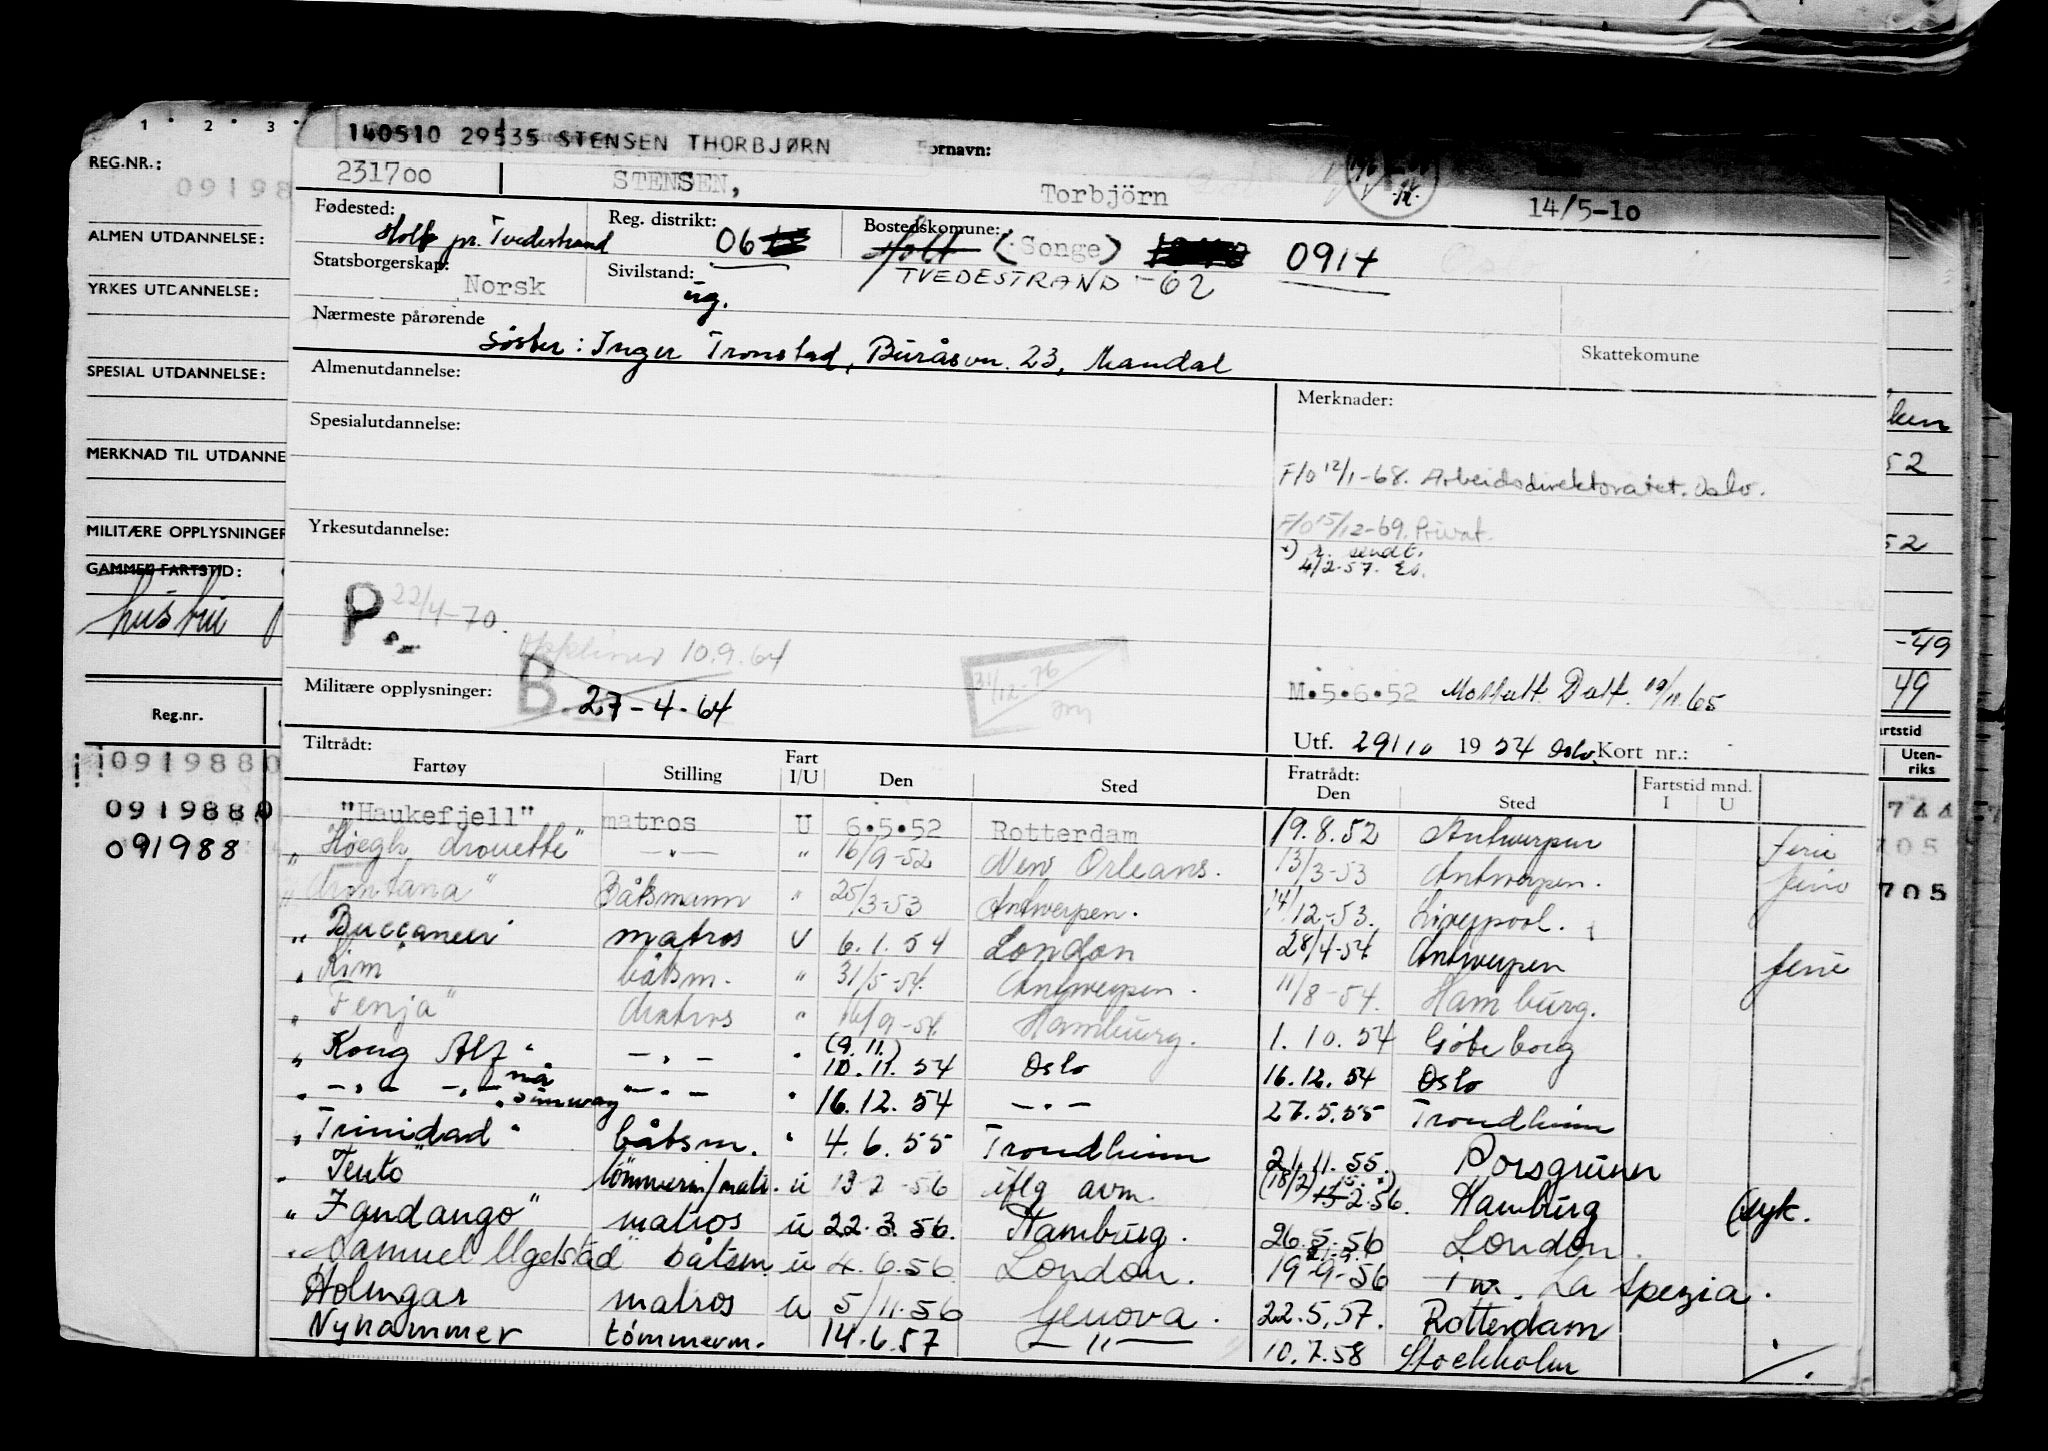 1 2 3
140510 29535 STENSEN THORBJØRN
ornavn:
REG.NR.:
231700 STENSEN, Torbjörn 14/5-10
09198
Fødested: Holt pr. Tvedestrand Reg. distrikt: 06 Bostedskomune: Holt (Songe) 0914
ALMEN UTDANNELSE:
Statsborgerskap: Norsk Sivilstand: ug. TVEDESTRAND -62
YRKES UTDANNELSE:
Nærmeste pårørende
Søster: Inger Tronstad, Buråsvn. 23, Mandal
Skattekomune
SPESIAL UTDANNELSE:
Almenutdannelse:
Merknader:
Spesialutdannelse:
MERKNAD TIL UTDANNE
52
F/O 12/1-68. Arbeidsdirektoratet. Oslo.
Yrkesutdannelse:
F/O 15/12-69. Privat.
MILITÆRE OPPLYSNINGER
52
GAMMEL FARTSTID:
4/2-57.
P 22/4-70.
10.9.64
-49
31/12-76
Militære opplysninger: B. 27-4-64
M.5.6.52 19/11.65
49
Utf. 29/10 1954 Oslo. Kort nr.:
Reg.nr.
rtstid
Uten-
riks
Tiltrådt: Fartøy Stilling Fart I/U Den Sted Fratrådt: Den Sted Fartstid mnd. I U
0919880 744
0919880 705
091988 705
"Haukefjell" matros U 6.5.52 Rotterdam 19.8.52 Antwerpen Ferie
" Høegh Drouette" -"- " 16/9-52 New Orleans. 13/3-53 Antwerpen. ferie
Båtsmann " 25/3-53 Antwerpen. 14/12-53. Liverpool.
" Buccaneer matros U 6.1.54 London 28/4-54 Antwerpen ferie
" Kim båtsm. " 31/5-54. Antwerpen. 11/8-54. Hamburg.
" Fenja" Matros " 16/9-54. Hamburg. 1.10.54 Göteborg
" Kong Alf" -"- " (9.11.) 10.11.54 Oslo 16.12.54 Oslo
" -"- -"- nå Simway -"- " 16.12.54 -"- 27.5.55 Trondheim
" Trinidad" båtsm. " 4.6.55 Trondheim 21.11.55. Porsgrunn
" Tento" tömmerm/matr. u 13 2-56 (18/2) 2.56. Hamburg (syk.
" Fandango" matros u 22.3.56. Hamburg. 26.5.56 London.
" Samuel Ugelstad" båtsm u 4.6.56 London. 19-9-56 La Spezia.
Holmgar matros u 5/11.56 Genova. 22.5.57. Rotterdam
Nyhammer tömmerm. 14.6.57 -"- 10.7.58 Stockholm